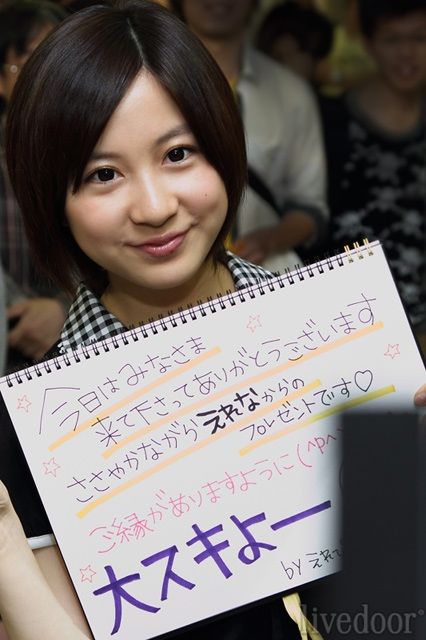 今日はみなさま
来て下さってありがとうございます
ささやかながらえれなからの
プレゼントです♡
ご縁がありますように(^p^
大スキよー
by えれ
livedoor